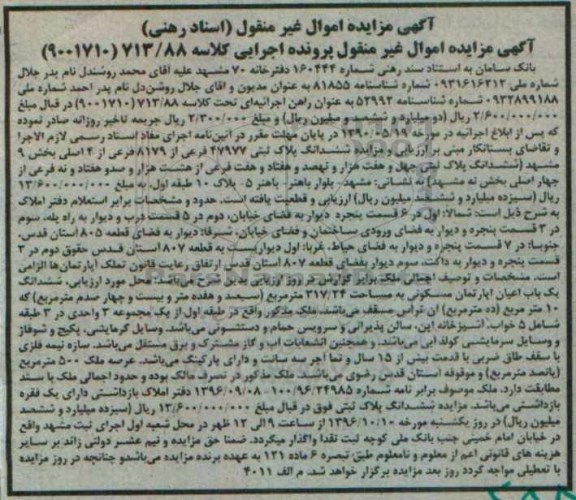 آگهی مزایده اموال غیر منقول (اسناد رهنی)
آگهی مزایده اموال غیر منقول پرونده اجرایی کلاسه ۷۱۳/۸۸ (۹۰۰۱۷۱۰)
بانک سامان به استناد سند رهنی شماره ۱۶۰۴۴۴ دفترخانه ۷۰ مشهد علیه آقای محمد روشندل نام پدر جلال
شماره ملی ۰۹۳۱۶۱۶۲۱۲ شماره شناسنامه ۸۱۸۵۵ به عنوان مدیون و آقای جلال روشن‌دل نام پدر احمد شماره ملی
۰۹۳۲۸۹۹۱۸۸ شماره شناسنامه ۵۲۹۹۲ به عنوان راهن اجرائیه‌ای تحت کلاسه ۷۱۳/۸۸ (۹۰۰۱۷۱۰) در قبال مبلغ
۲/۶۰۰/۰۰۰/۰۰۰ ریال (دو میلیارد و ششصد میلیون ریال) و مبلغ ۲/۳۰۰/۰۰۰ ریال جریمه تاخیر روزانه صادر نموده
که پس از ابلاغ اجرائیه در مورخه ۱۳۹۰/۰۵/۱۹ در پایان مهلت مقرر در آئین‌نامه اجرای مفاد اسناد رسمی لازم الاجرا
و تقاضای بستانکار مبنی بر ارزیابی و مزایده ششدانگ پلاک ثبتی ۴۷۹۷۷ فرعی از ۸۱۷۹ فرعی از ۴ اصلی بخش ۹
مشهد (ششدانگ پلاک ثبتی چهل و هفت هزار و نهصد و هفتاد و هفت فرعی از هشت هزار و صدو هفتاد و نه فرعی از
چهار اصلی بخش نه مشهد) به نشانی: مشهد- بلوار باهنر- باهنر ۵- پلاک ۱۰ طبقه اول، به مبلغ ۱۳/۶۰۰/۰۰۰/۰۰۰
ریال (سیزده میلیارد و ششصد میلیون ریال) ارزیابی و قطعیت یافته است. حدود و مشخصات برابر استعلام دفتر املاک
به شرح ذیل است: شمالا: اول در ۶ قسمت پنجره دیوار به فضای خیابان، دوم در ۵ قسمت درب و دیوار به راه پله، سوم
در ۳ قسمت پنجره و دیوار به فضای ورودی ساختمان و فضای خیابان، شرقا: دیوار به فضای قطعه ۸۰۵ استان قدس.
جنوبا: در ۷ قسمت پنجره و دیوار به فضای حیاط. غربا: اول دیواریست به قطعه ۸۰۷ استان قدس حقوق دوم در ۳
قسمت پنجره و دیوار به داکت، سوم دیوار بفضای قطعه ۸۰۷ استان قدس ارتفاق رعایت قانون تملک آپارتمان‌ها الزامی
است. مشخصات و توصیف اجمالی ملک برابر گزارش در روز ارزیابی بدین شرح می‌باشد: محل مورد ارزیابی، ششدانگ
یک باب اعیان آپارتمان مسکونی به مساحت ۳۱۷/۲۴ مترمربع (سیصد و هفده متر و بیست و چهار صدم مترمربع) که
۱۰ متر مربع (ده مترمربع) آن تراس مسقف می‌باشد، ملک مذکور واقع در طبقه اول از یک مجموعه ۳ واحدی در ۳ طبقه
شامل ۵ خواب، آشپزخانه اپن، سالن پذیرائی و سرویس حمام و دستشوئی می‌باشد. وسایل گرمایشی، پکیج و شوفاژ
و وسایل سرمایشی کولر آبی می‌باشد، و همچنین انشعابات آب و گاز مشترک و برق مستقل می‌باشد. سازه نیمه فلزی
با سقف طاق ضربی با قدمت بیش از ۱۵ سال و نما آجر سه سانت و دارای پارکینگ می‌باشد. عرصه ملک ۵۰۰ مترمربع
(پانصد مترمربع) و موقوفه آستان قدس رضوی می‌باشد. ملک مذکور در تصرف مالک بوده و حدود اجمالی ملک با سند
مطابقت دارد. ملک موصوف برابر نامه شماره ۱۰۰/۹۶/۲۴۹۸۵- ۱۳۹۶/۰۹/۰۸ دفتر املاک بازداشتی دارای یک فقره
بازداشتی می‌باشد. مزایده ششدانگ پلاک ثبتی فوق در قبال مبلغ ۱۳/۶۰۰/۰۰۰/۰۰۰ ریال (سیزده میلیارد و ششصد
میلیون ریال) در روز یکشنبه مورخه ۱۳۹۶/۱۰/۱۰ از ساعت ۹ الی ۱۲ ظهر در محل شعبه اول اجرای ثبت مشهد واقع
در خیابان امام خمینی جنب بانک ملی کوچه ثبت نقدا واگذار میگردد. ضمنا حق مزایده و نیم عشر دولتی زائد بر سایر
هزینه های قانونی اعم از معلوم و نامعلوم طبق تبصره ۶ ماده ۱۲۱ به عهده برنده مزایده می‌باشدو چنانچه در روز مزایده
با تعطیلی مواجه گردد روز بعد مزایده برگزار خواهد شد. م الف ۴۰۱۱